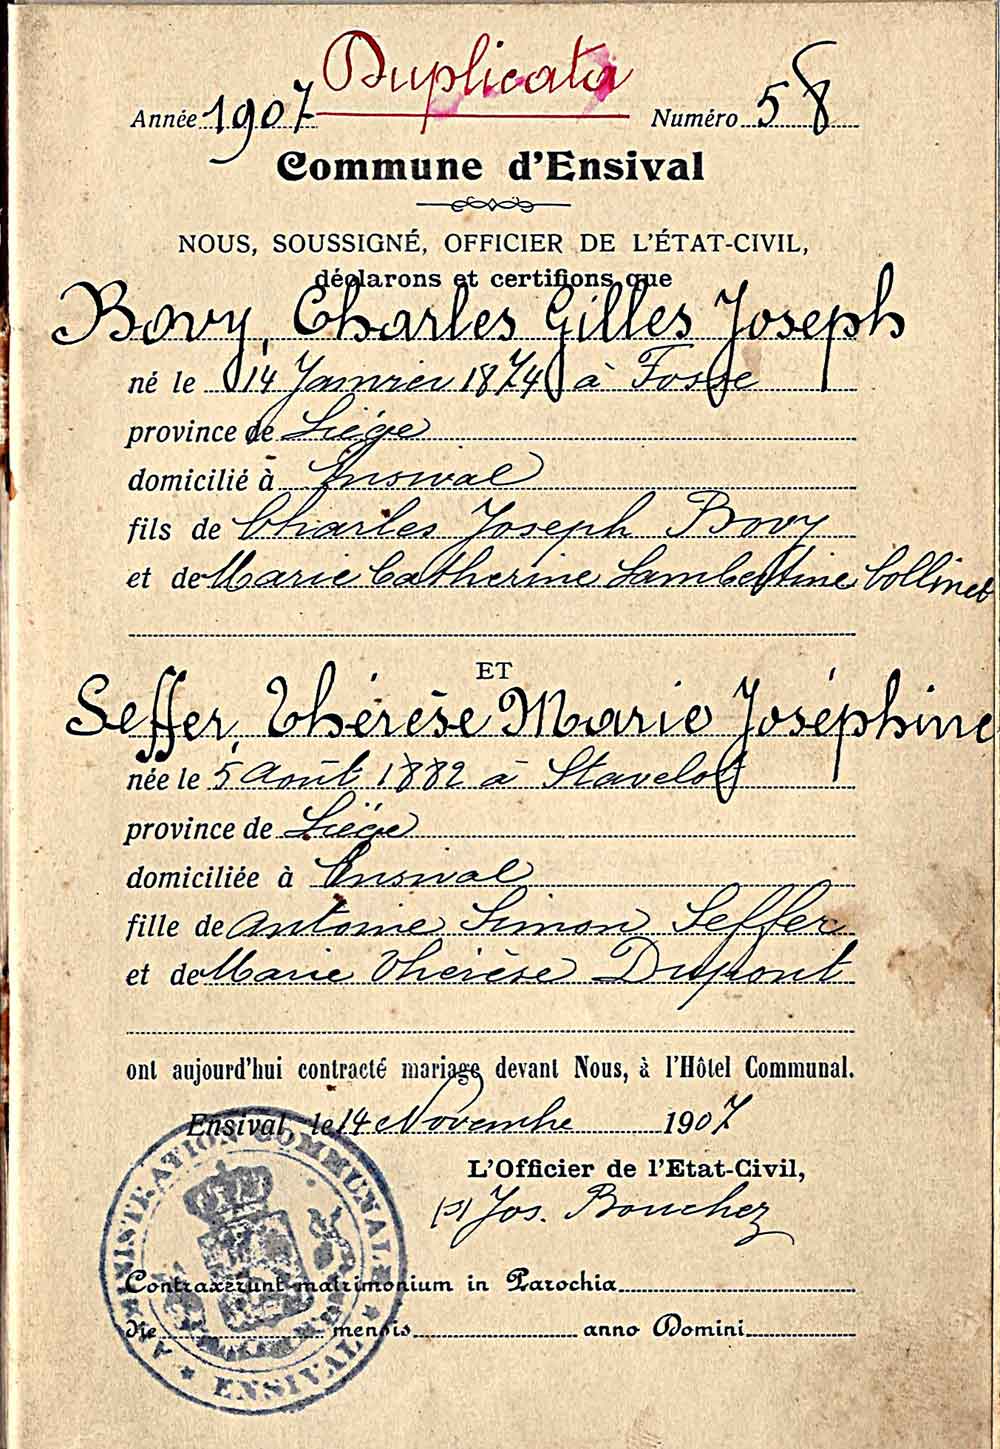 Duplicata
Année 1907 Numéro 58
Commune d'Ensival
NOUS, SOUSSIGNÉ, OFFICIER DE L'ÉTAT-CIVIL,
déclarons et certifions que
Bovy, Charles Gilles Joseph
né le 14 Janvier 1874 à Fosse
province de Liége
domicilié à Ensival
fils de Charles Joseph Bovy
et de Marie Catherine Lambertine Collinet
ET
Seffer, Thérèse Marie Joséphine
née le 5 Août 1882 à Stavelot
province de Liége
domiciliée à Ensival
fille de Antoine Simon Seffer
et de Marie Thérèse Dupont
ont aujourd'hui contracté mariage devant Nous, à l'Hôtel Communal.
Ensival, le 14 Novembre 1907
L'Officier de l'Etat-Civil,
(s) Jos. Bouchez
Contraxerunt matrimonium in Parochia
die mensis anno Domini
ADMINISTRATION COMMUNALE
* ENSIVAL *